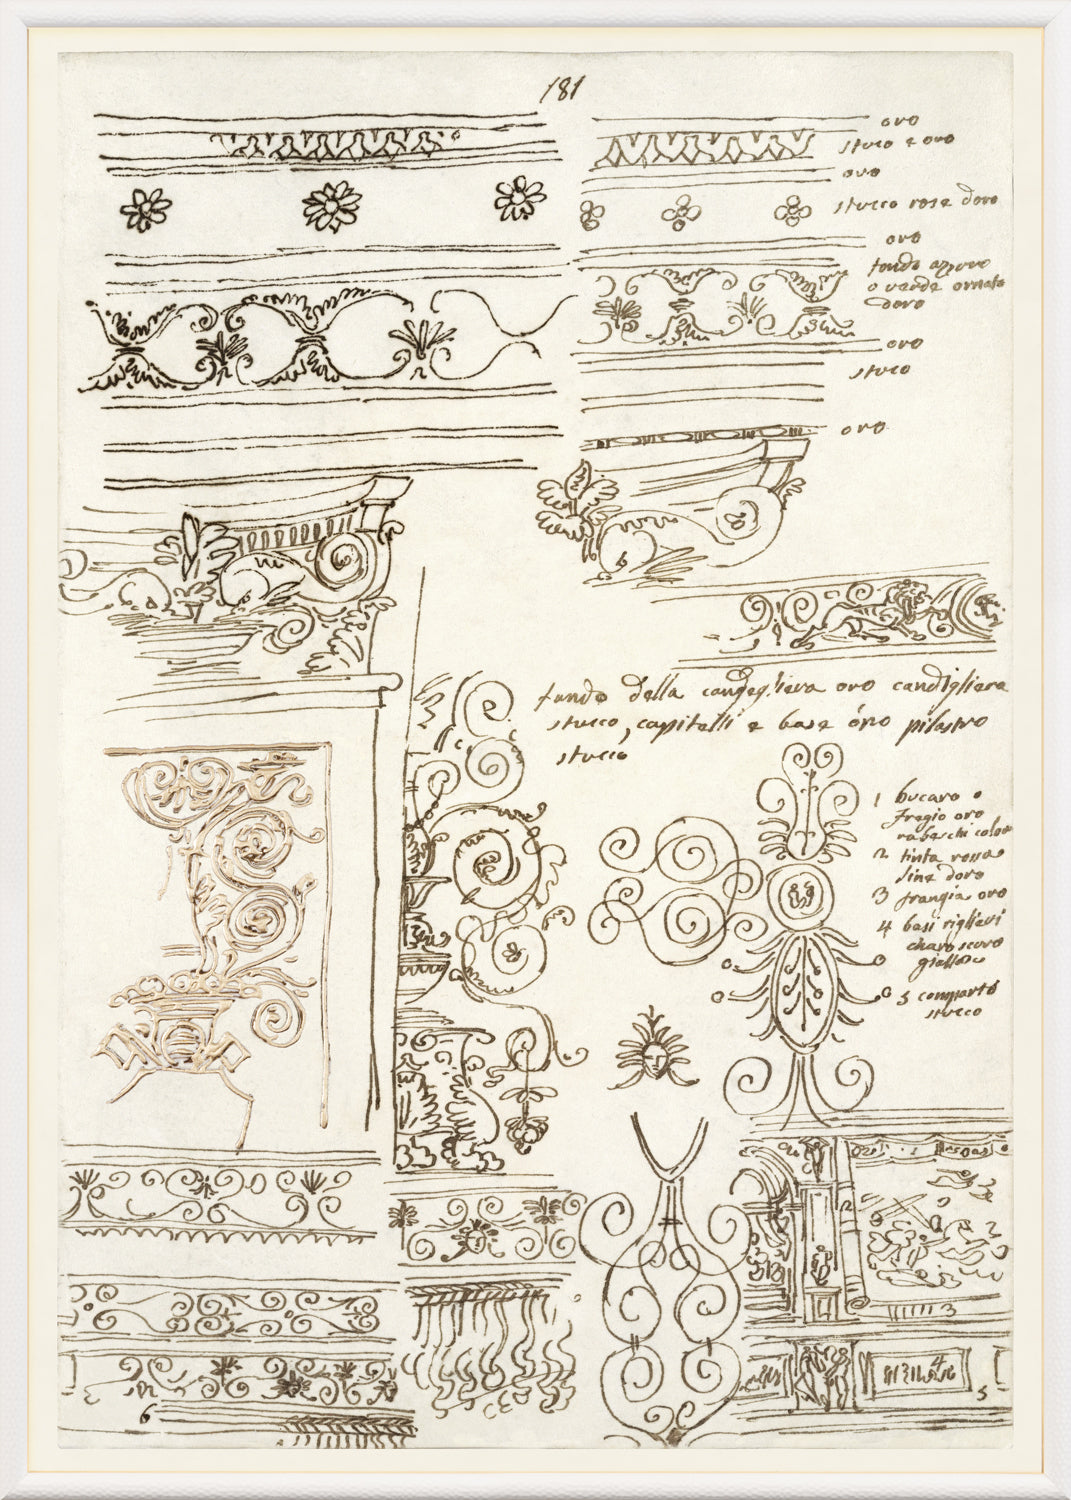 181
oro
stuco e oro
oro
stucco rose doro
oro
fondo azzuro
o verde ornato
doro
oro
stuco
oro
fondo della oro candigliera
stucco, capitelli e base oro pilastro
stucco
1 bucaro o
fregio oro
rabeschi color
2 tinta rossa
line doro
3 frangia oro
4 basi riglievi
charo scuro
giallo
5 comparto
stucco
1
2
3
4
5
6